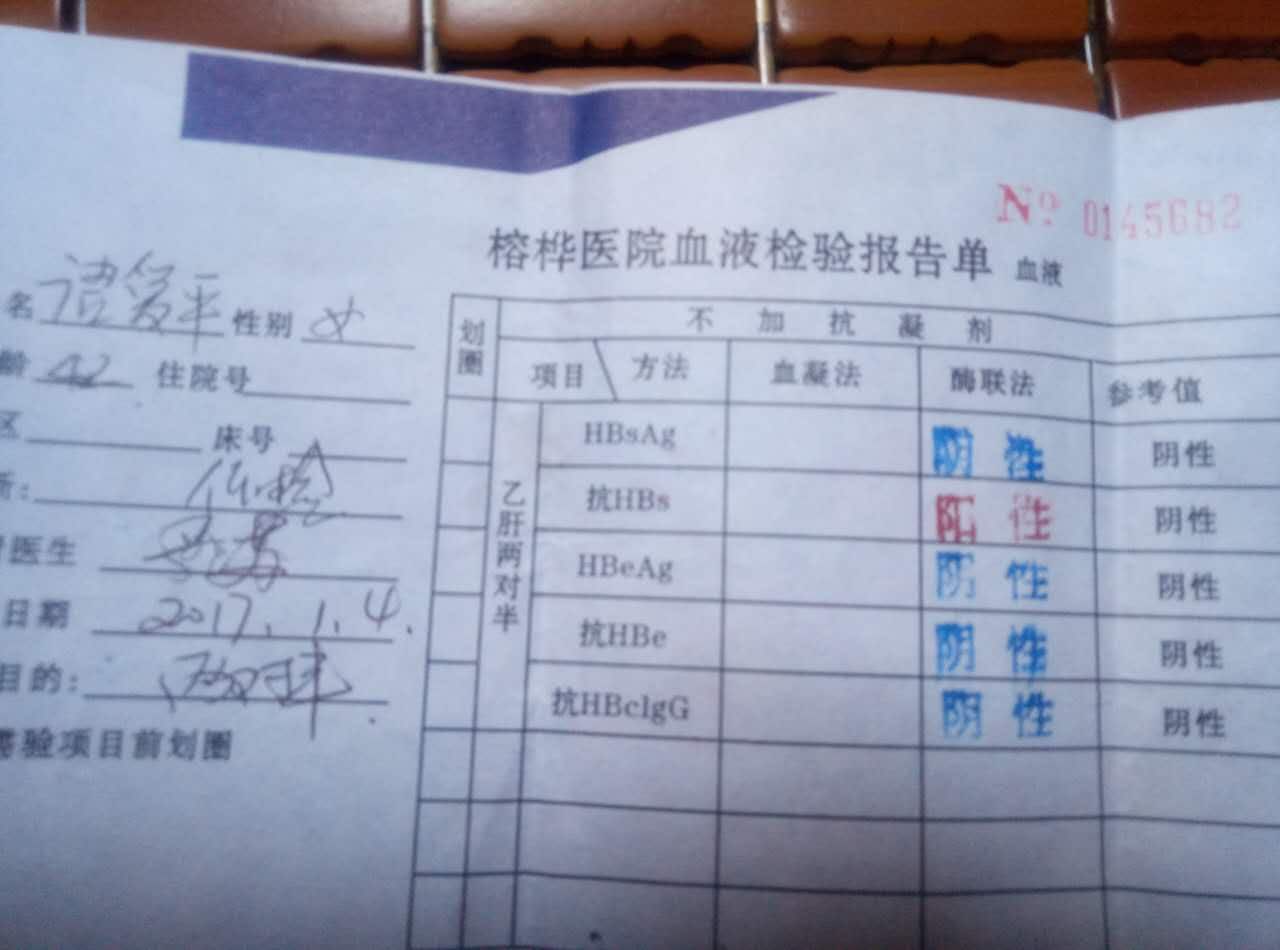 № 0145682
榕桦医院血液检验报告单 血液
名 性别 女
龄 42 住院号
区 床号
医生
日期 2017.1.4.
目的: 两对半
验项目前划圈
划圈 不加抗凝剂
项目 方法 血凝法 酶联法 参考值
乙肝两对半
HBsAg 阴性 阴性
抗HBs 阳性 阴性
HBeAg 阴性 阴性
抗HBe 阴性 阴性
抗HBcIgG 阴性 阴性